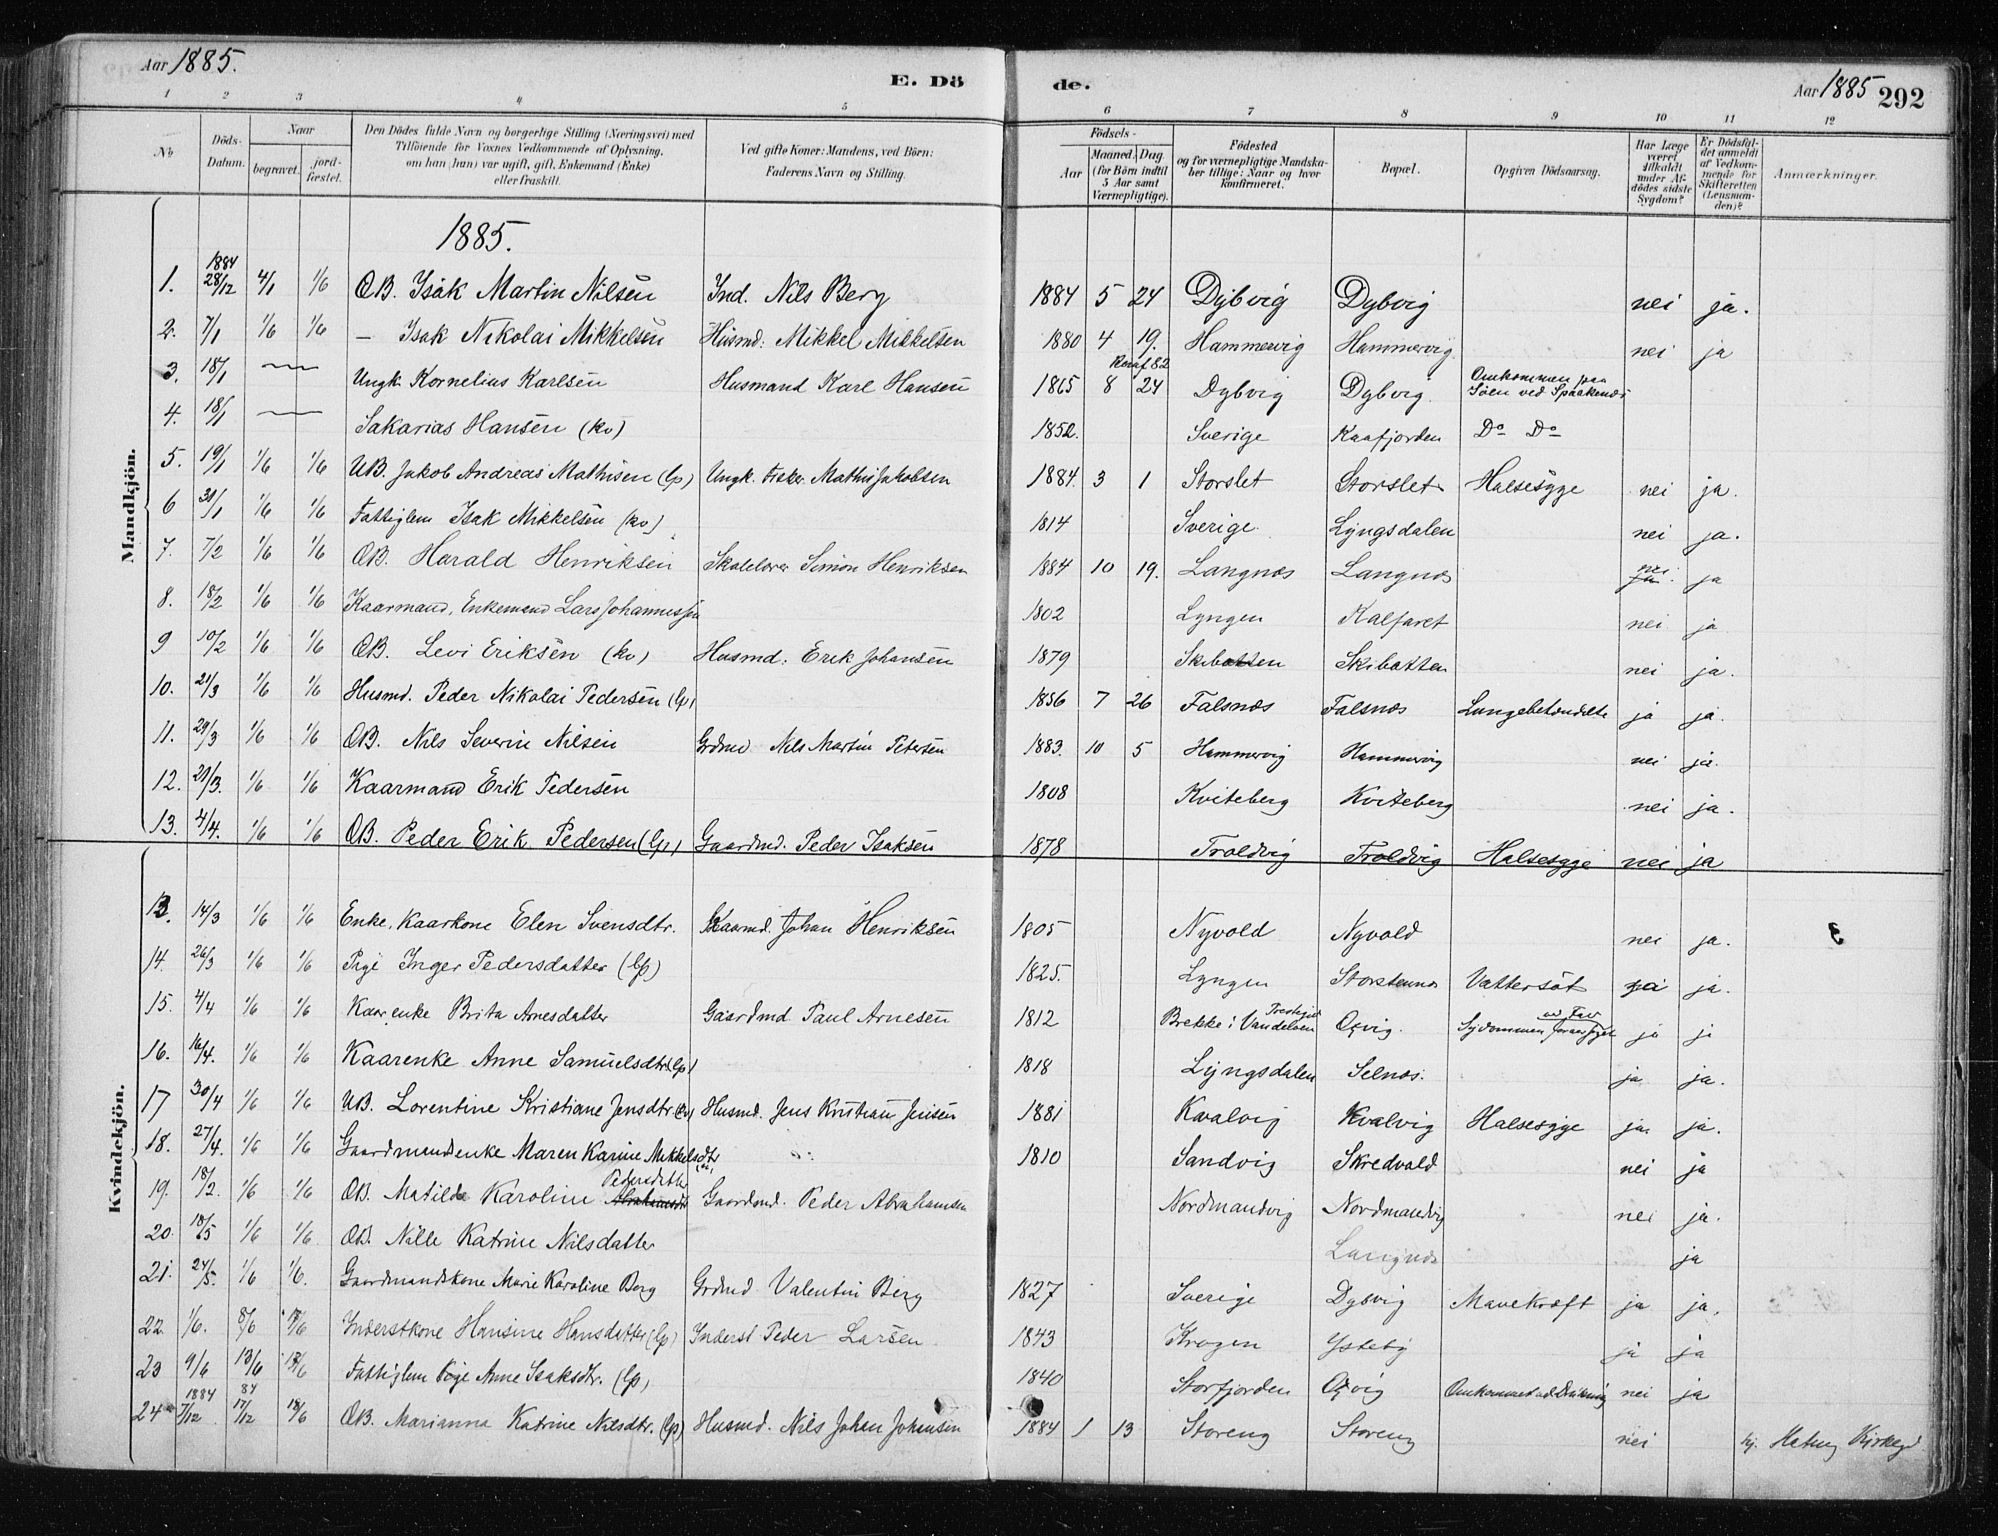 Aar 1885.
E. Dö
de.
Aar 1885
292
1 2 3 4 5 6 7 8 9 10 11 12
No
Döds-Datum.
Naar begravet. jord-fæstet.
Den Dödes fulde Navn og borgerlige Stilling (Næringsvei) med Tilföiende for Voxnes Vedkommende af Oplysning, om han (hun) var ugift, gift, Enkemand (Enke) eller fraskilt.
Ved gifte Koner: Mandens, ved Börn: Faderens Navn og Stilling.
Födsels-
Aar Maaned. Dag. (for Börn indtil 5 Aar samt Værnepligtige).
Födested og for værnepligtige Mandskaber tillige: Naar og hvor konfirmeret.
Bopæl.
Opgiven Dödsaarsag.
Har Læge været tilkaldt under Afdödes sidste Sygdom?
Er Dödsfaldet anmeldt af Vedkommende for Skifteretten (Lensmanden)?
Anmærkninger.
Mandkjön.
1885.
1. 1884 28/12 4/1 1/6 ÆB. Isak Martin Nilsen Ind. Nils Berg 1884 5 24 Dybvig Dybvig nei ja.
2. 7/1 1/6 1/6 — Isak Nikolai Mikkelsen Husmd: Mikkel Mikkelsen 1880 4 19. Hammervig Hammervig nei ja
3. 18/1 — Ungk. Kornelius Karlsen Husmand Karl Hansen 1865 8 24 Dybvig Dybvig. Omkommen paa Söen ved Spaakenæs
4. 18/1 — Sakarias Hansen (kv) 1852. Sverige Kaafjorden Do Do
5. 19/1 1/6 1/6 UB. Jakob Andreas Mathisen (lp) Ungk. Fisker Mathis Jakobsen 1884. 3 1 Storslet Storslet Halsesyge nei ja.
6 31/1 1/6 1/6 Fattiglem Isak Mikkelsen (kv) 1814 Sverige Lyngsdalen nei ja.
7. 7/2 1/6 1/6 ÆB. Harald Henriksen Skolelærer Simon Henriksen 1884 10 19. Langnæs Langnæs nei ja
8. 18/2 1/6 1/6 Kaarmand, Enkemand Lars Johannessen 1802 Lyngen Kalfaret nei ja
9 10/2 1/6 1/6 ÆB. Levi Eriksen (kv) Husmd: Erik Johansen 1879 Skibotten Skibotten nei ja.
10. 21/3 1/6 1/6 Husmd. Peder Nikolai Pedersen (lp) 1856 7 26 Falsnæs Falsnæs Lungebetændelse ja ja.
11. 29/3 1/6 1/6 ÆB. Nils Severin Nilsen Grdmd Nils Martin Petersen 1883. 10 5 Hammervig Hammervig nei ja.
12. 21/3. 1/6 1/6 Kaarmand Erik Pedersen 1808 Kviteberg Kviteberg nei ja.
13. 4/4. 1/6 1/6 ÆB. Peder Erik Pedersen (lp) Gaardmd. Peder Isaksen 1878 Troldvig Troldvig Halsesyge nei ja
Kvindekjön.
13. 14/3 1/6 1/6 Enke, Kaarkone Elen Svensdtr. Kaarmd. Johan Henriksen 1805 Nyvold Nyvold nei ja.
14. 26/3 1/6 1/6 Pige Inger Pedersdatter (lp) 1825. Lyngen Vattersot ja.
15. 4/4 1/6 1/6 Kaarenke Brita Arnesdatter Gaardmd Paul Arnesen 1812 Brekke i Oxvig. ja
16. 16/4. 1/6 1/6 Kaarenke Anne Samuelsdtr (lp) 1818 Lyngsdalen Selnæs. ja ja.
17 30/4 1/6 1/6 UB. Lorentine Kristiane Jensdtr (kv) Husmd. Jens Kristian Jensen 1881 Kvalvig Kvalvig Halsesyge ja ja.
18. 27/4. 1/6 1/6 Gaardmandsenke Maren Karine Mikkelsdtr 1810 Sandvig Skredvold nei ja
19. 18/2. 1/6 1/6 ÆB. Matilde Karoline Pedersdatter Gaardmd. Peder Abrahamsen Nordmandvig Nordmandvig nei ja.
20. 18/5 1/6 1/6 ÆB. Nille Katrine Nilsdatter Langnæs ja
21. 24/5. 1/6 1/6. Gaardmandskone Marie Karoline Berg Grdmd Valentin Berg 1827 Sverige Dybvig Mavekræft ja ja.
22. 1/6. 8/6 Inderstkone Hansine Hansdatter (lp) Inderst Peder Larsen 1843 Kragen Ysteby ja ja
23 9/6 13/6 Fattiglem Pige Anne Isaksdtr. (lp) 1840 Storfjorden Oxvig nei ja
24 1884 7/12 84 17/12 ÆB. Marianna Katrine Nilsdtr. (lp) Husmd. Nils Johan Johansen 1884 1 13 Storeng Storeng nei